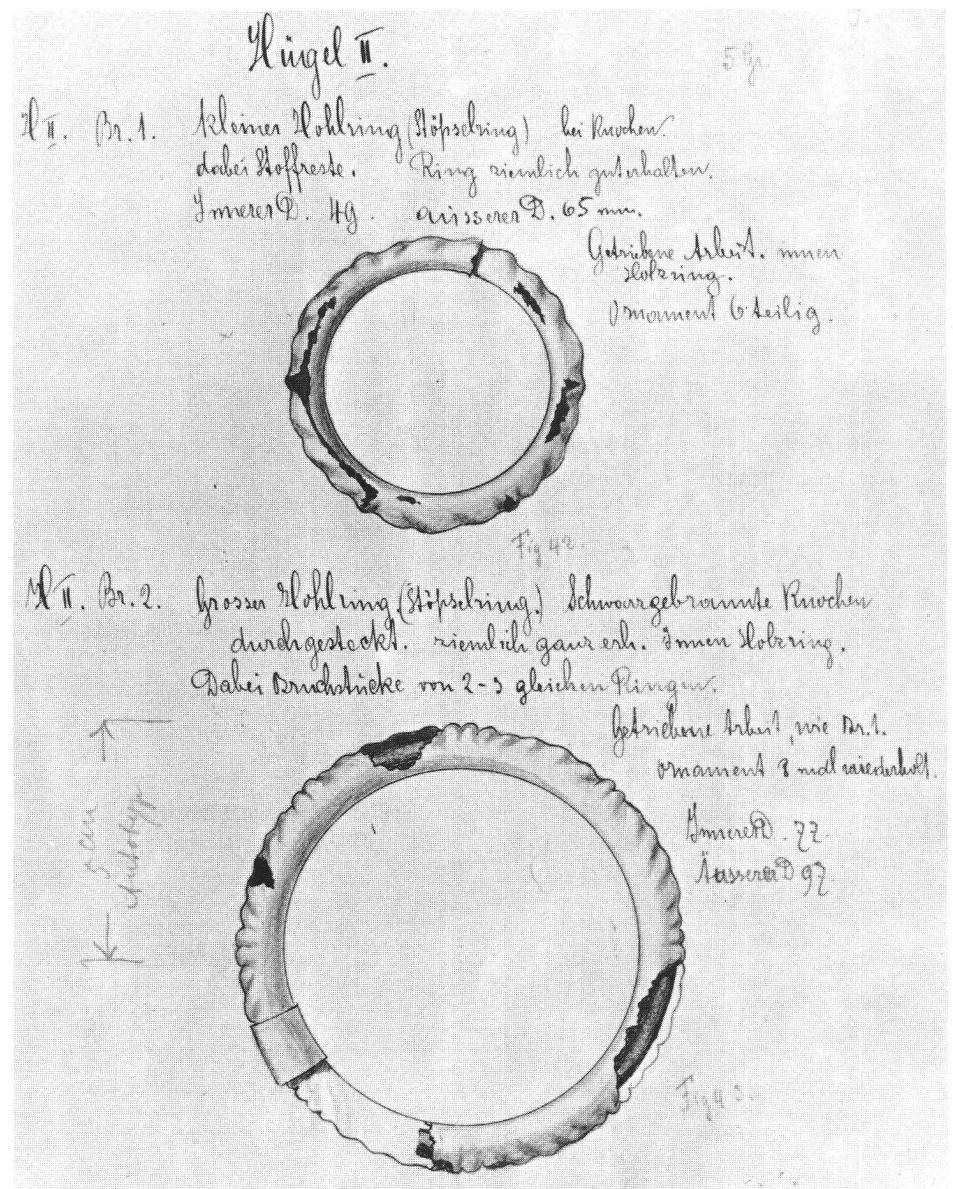 Hügel II.
5 Gr.
H II. Br. 1. kleiner Hohlring (Stöpselring) bei Knochen.
dabei Stoffreste. Ring ziemlich guterhalten.
Innerer D. 49. äusserer D. 65 mm.
Getriebene Arbeit. innen
Holzring.
Ornament 6 teilig.
Fig 42.
H II. Br. 2. Grosser Hohlring (Stöpselring.) Schwarzgebrannte Knochen
durchgesteckt. ziemlich ganz erh. Innen Holzring.
Dabei Bruchstücke von 2-3 gleichen Ringen.
Getriebene Arbeit, wie Br. 1.
Ornament 8 mal wiederholt.
Innerer D. 77.
Äusserer D 97.
5 cm
Autotyp
Fig 43.